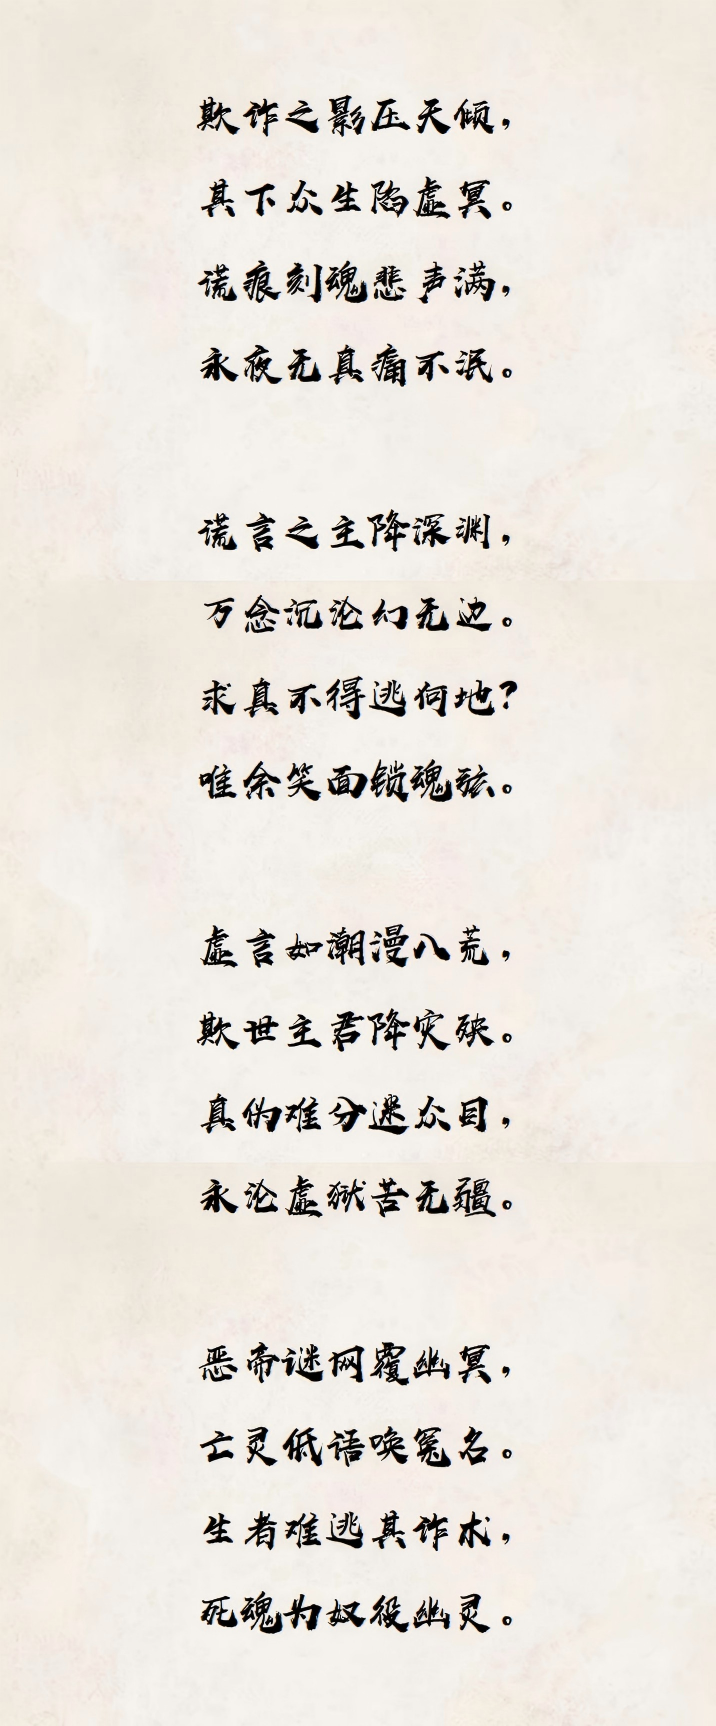 欺诈之影压天倾，
其下众生陷虚冥。
谎痕刻魂悲声满，
永夜无真痛不泯。
谎言之主降深渊，
万念沉沦幻无边。
求真不得逃何地？
唯余笑面锁魂弦。
虚言如潮漫八荒，
欺世主君降灾殃。
真伪难分迷众目，
永沦虚狱苦无疆。
恶帝谜网覆幽冥，
亡灵低语唤冤名。
生者难逃其诈术，
死魂为奴役幽灵。